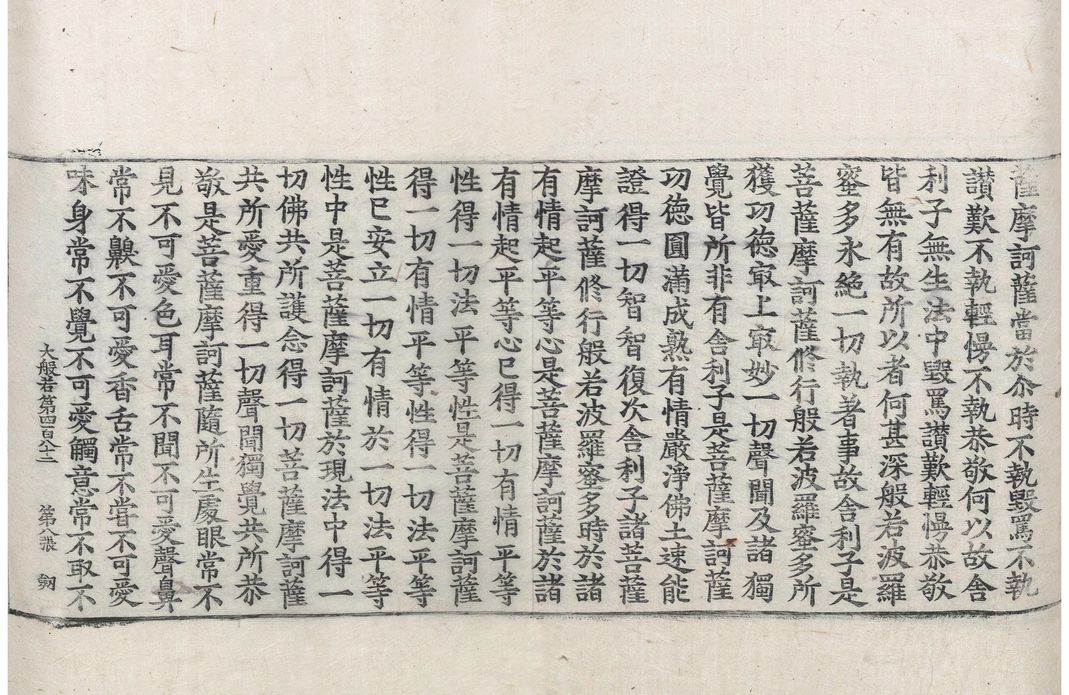 薩摩訶薩當於尒時不執毀罵不執
讃歎不執輕慢不執恭敬何以故舎
利子無生法中毀罵讃歎輕慢恭敬
皆無有故所以者何甚深般若波羅
蜜多永絶一切執著事故舎利子是
菩薩摩訶薩修行般若波羅蜜多所
獲功德冣上冣妙一切聲聞及諸獨
覺皆所非有舎利子是菩薩摩訶薩
功德圓滿成熟有情嚴淨佛土速能
證得一切智智復次舎利子諸菩薩
摩訶薩修行般若波羅蜜多時於諸
有情起平等心是菩薩摩訶薩於諸
有情起平等心已得一切有情平等
性得一切法平等性是菩薩摩訶薩
得一切有情平等性得一切法平等
性已安立一切有情於一切法平等
性中是菩薩摩訶薩於現法中得一
切佛共所護念得一切菩薩摩訶薩
共所愛重得一切聲聞獨覺共所恭
敬是菩薩摩訶薩隨所生處眼常不
見不可愛色耳常不聞不可愛聲鼻
常不齅不可愛香舌常不甞不可愛
大般若第四百八十二 第八張 劒
味身常不覺不可愛觸意常不取不